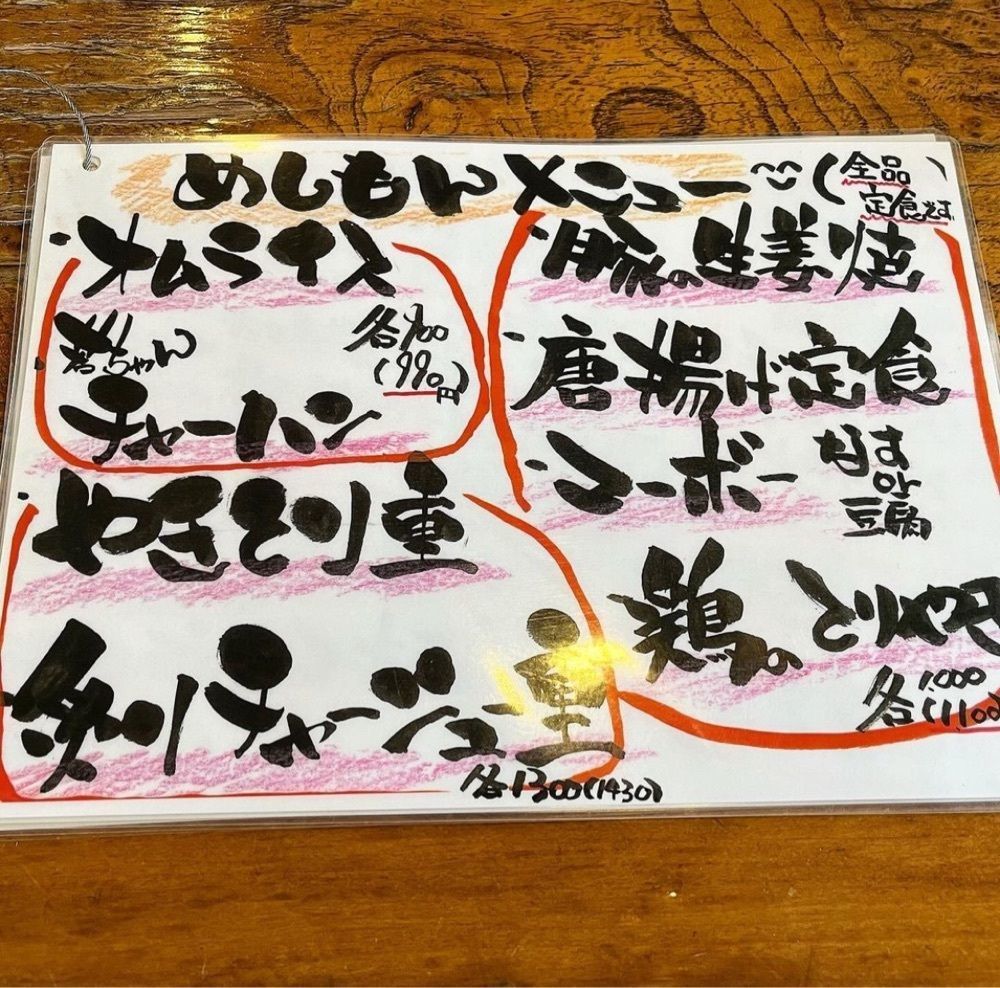 めしもんメニュー (全品
定食です)
・オムライス
ちゃん 各900
(990円)
チャーハン
・やきとり重
炙りチャーシュー重
各1300(1430)
・豚の生姜焼
・唐揚げ定食
・マーボー なす
or
豆腐
鶏の
各1.000
(1100